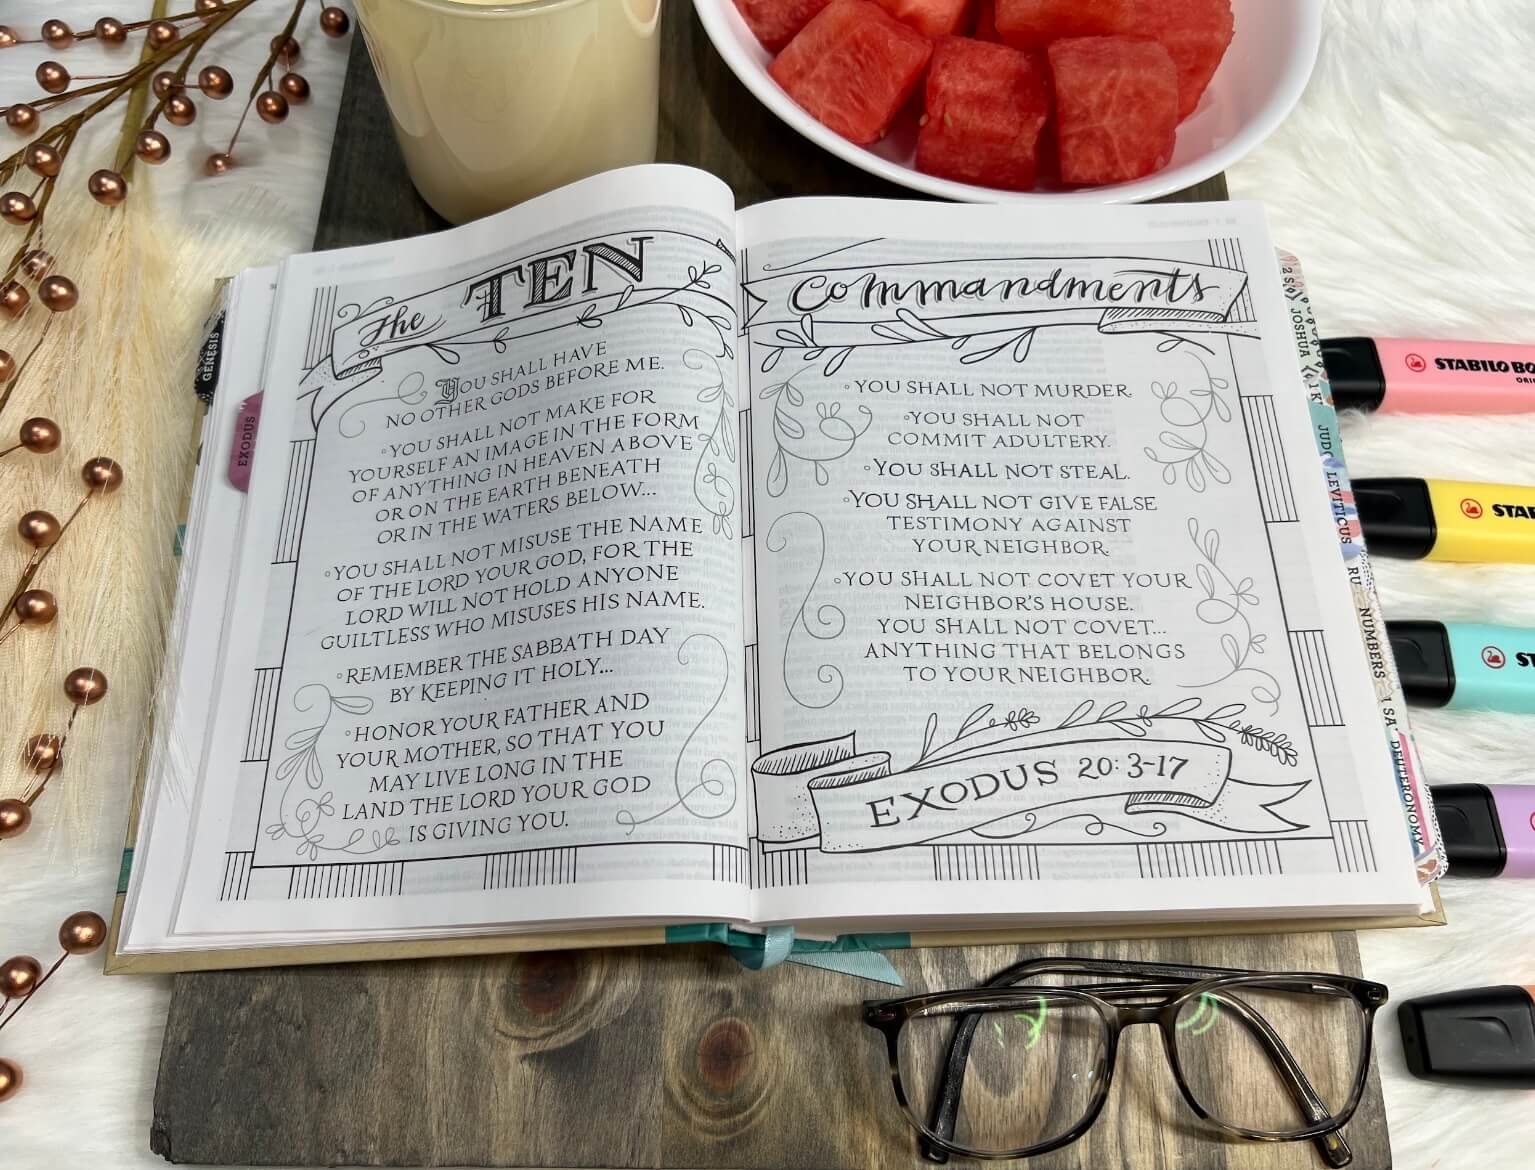 The TEN
YOU SHALL HAVE
NO OTHER GODS BEFORE ME.
YOU SHALL NOT MAKE FOR
YOURSELF AN IMAGE IN THE FORM
OF ANYTHING IN HEAVEN ABOVE
OR ON THE EARTH BENEATH
OR IN THE WATERS BELOW...
YOU SHALL NOT MISUSE THE NAME
OF THE LORD YOUR GOD, FOR THE
LORD WILL NOT HOLD ANYONE
GUILTLESS WHO MISUSES HIS NAME.
REMEMBER THE SABBATH DAY
BY KEEPING IT HOLY...
HONOR YOUR FATHER AND
YOUR MOTHER, SO THAT YOU
MAY LIVE LONG IN THE
LAND THE LORD YOUR GOD
IS GIVING YOU.
Commandments
YOU SHALL NOT MURDER.
YOU SHALL NOT
COMMIT ADULTERY.
YOU SHALL NOT STEAL.
YOU SHALL NOT GIVE FALSE
TESTIMONY AGAINST
YOUR NEIGHBOR.
YOU SHALL NOT COVET YOUR
NEIGHBOR'S HOUSE.
YOU SHALL NOT COVET...
ANYTHING THAT BELONGS
TO YOUR NEIGHBOR.
EXODUS 20:3-17
GENESIS
EXODUS
2 S
JOSHUA
1 K
JUDG
LEVITICUS
RU
NUMBERS
SA
DEUTERONOMY
STABILO BO
ORI
STA
ST